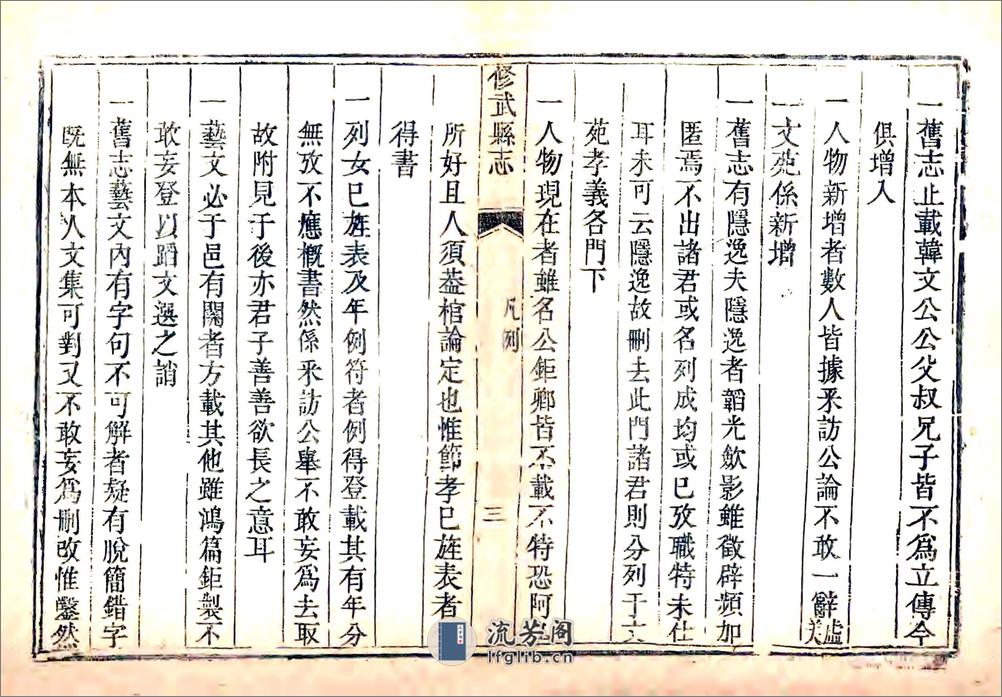 一舊志止載韓文公公父叔兄子皆不爲立傳今
俱增入
一人物新增者數人皆據釆訪公論不敢一辭虛美
一文苑係新增
一舊志有隱逸夫隱逸者韜光斂影雖徵辟頻加
匿焉不出諸君或名列成均或已攷職特未仕
耳未可云隱逸故刪去此門諸君則分列于文
苑孝義各門下
一人物現在者雖名公鉅卿皆不載不特恐阿
所好且人須葢棺論定也惟節孝已旌表者
得書
一列女已旌表及年例符者例得登載其有年分
無攷不應槪書然係釆訪公舉不敢妄爲去取
故附見于後亦君子善善欲長之意耳
一藝文必于邑有關者方載其他雖鴻篇鉅製不
敢妄登以蹈文選之誚
一舊志藝文內有字句不可解者疑有脫簡錯字
既無本人文集可對又不敢妄爲刪改惟鑿然
修武縣志
凡例
三
流芳阁
lfglib.cn